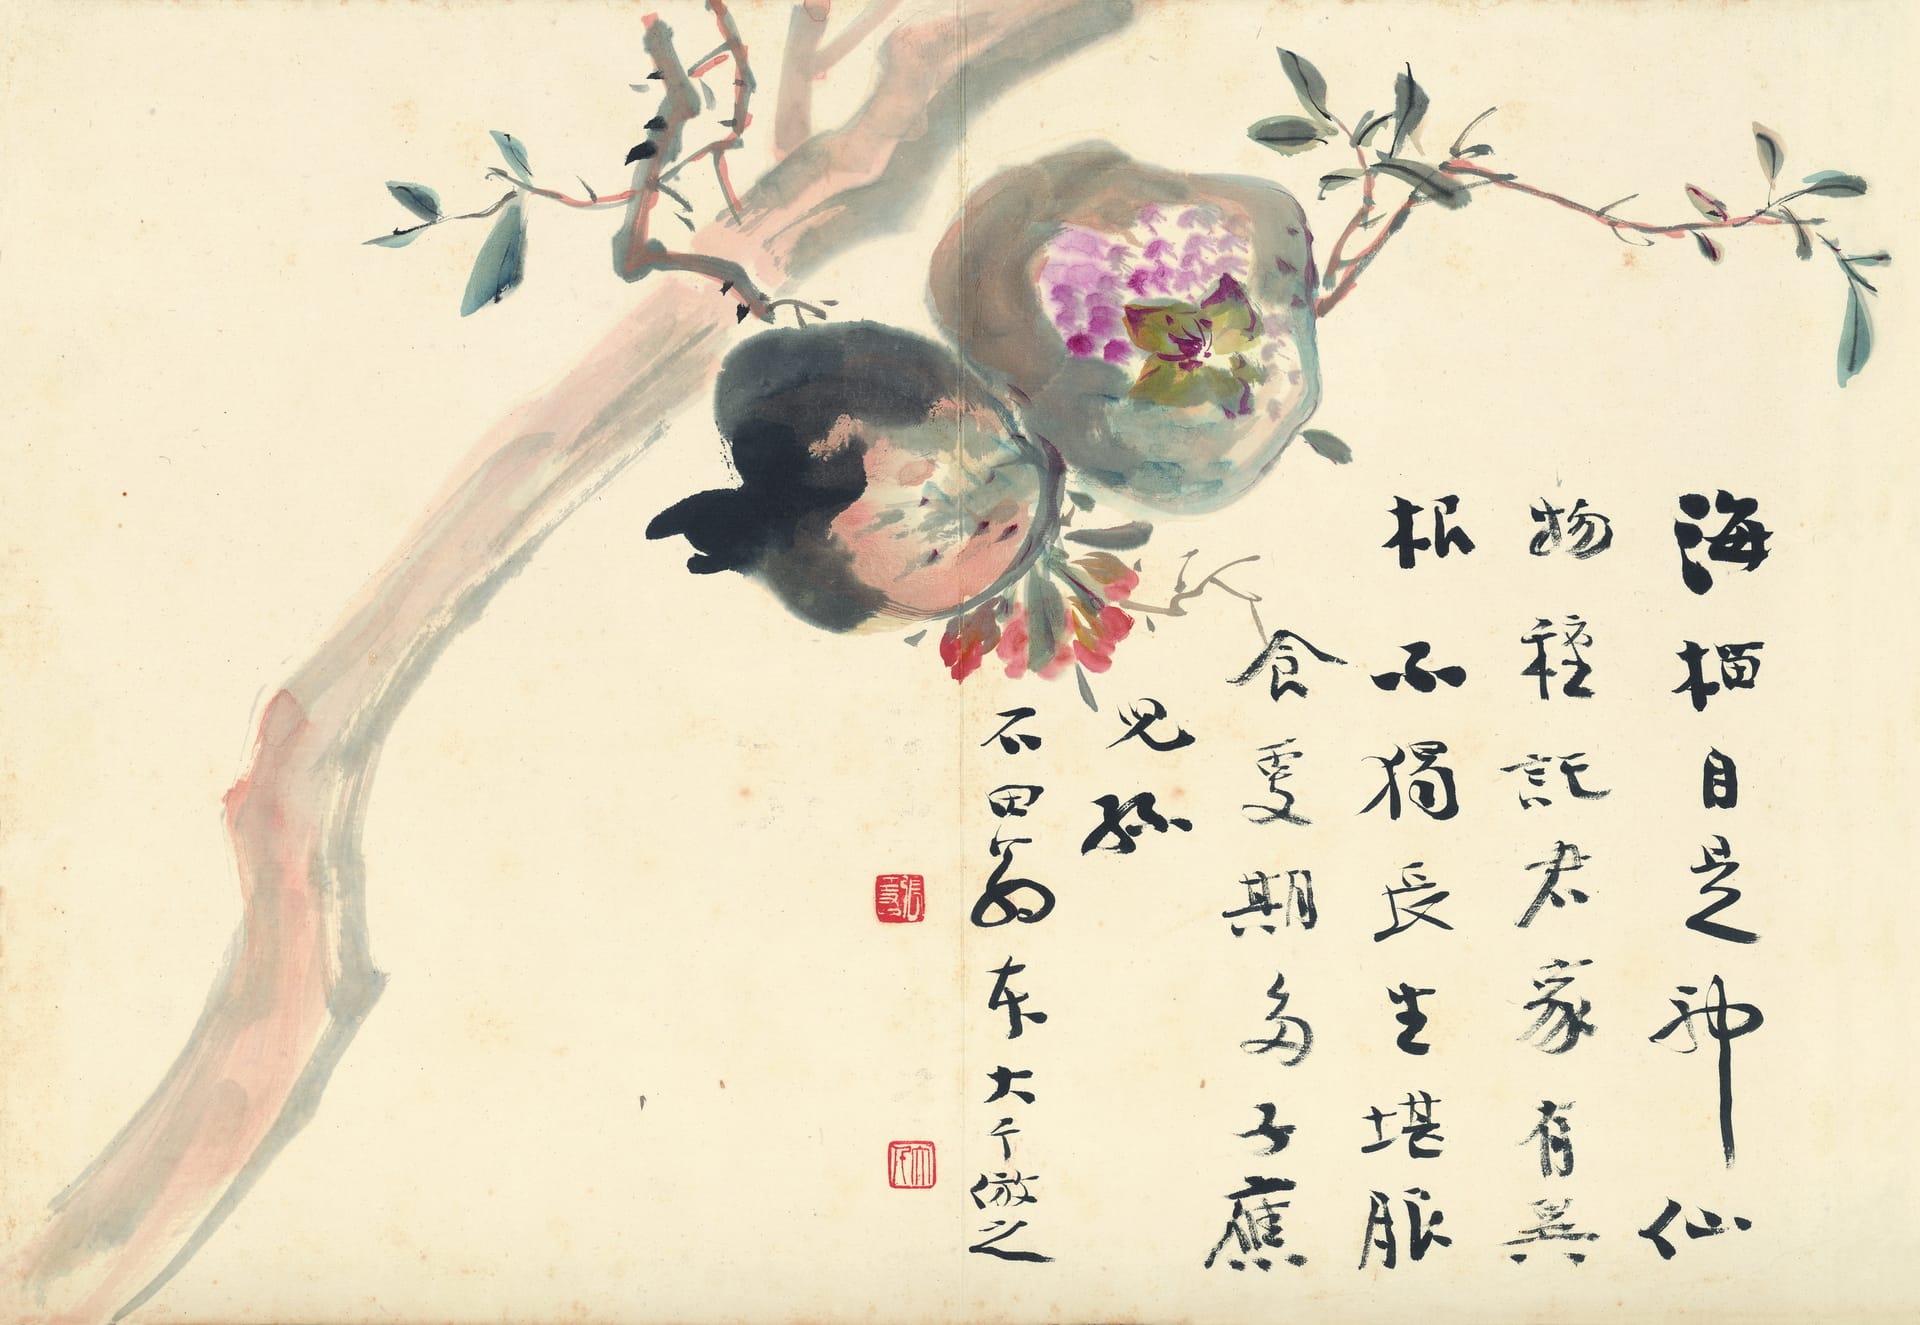 海榴自是神仙
物種託君家有異
根不獨長生堪服
食更期多子應
兒孫
石田翁本大千倣之
張爰